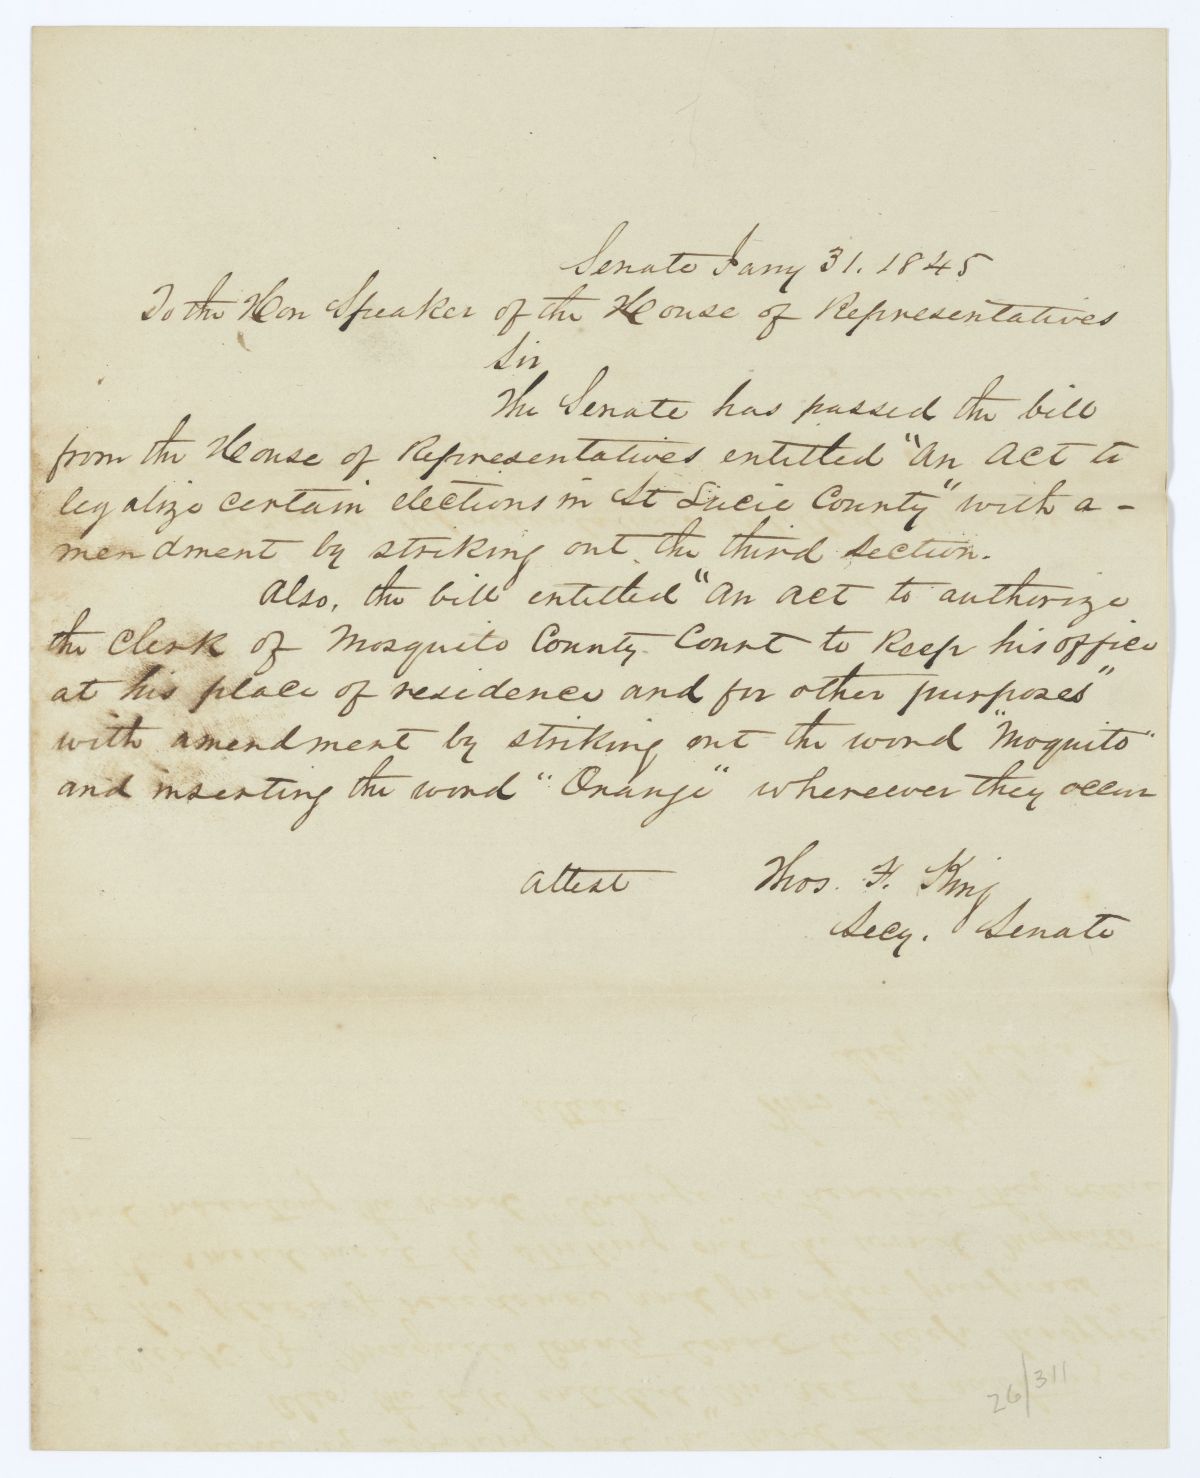 Senate Jany 31. 1845
To the Hon Speaker of the House of Representatives
Sir
The Senate has passed the bill
from the House of Representatives entitled "An Act to
legalize certain elections in St Lucie County" with a-
mendment by striking out the third section.
Also, the bill entitled "An Act to authorize
the Clerk of Mosquito County Court to keep his office
at his place of residence and for other purposes"
with amendment by striking out the word "Moquito"
and inserting the word "Orange" whereever they occur
Attest Thos. F. King
Secy. Senate
26/311